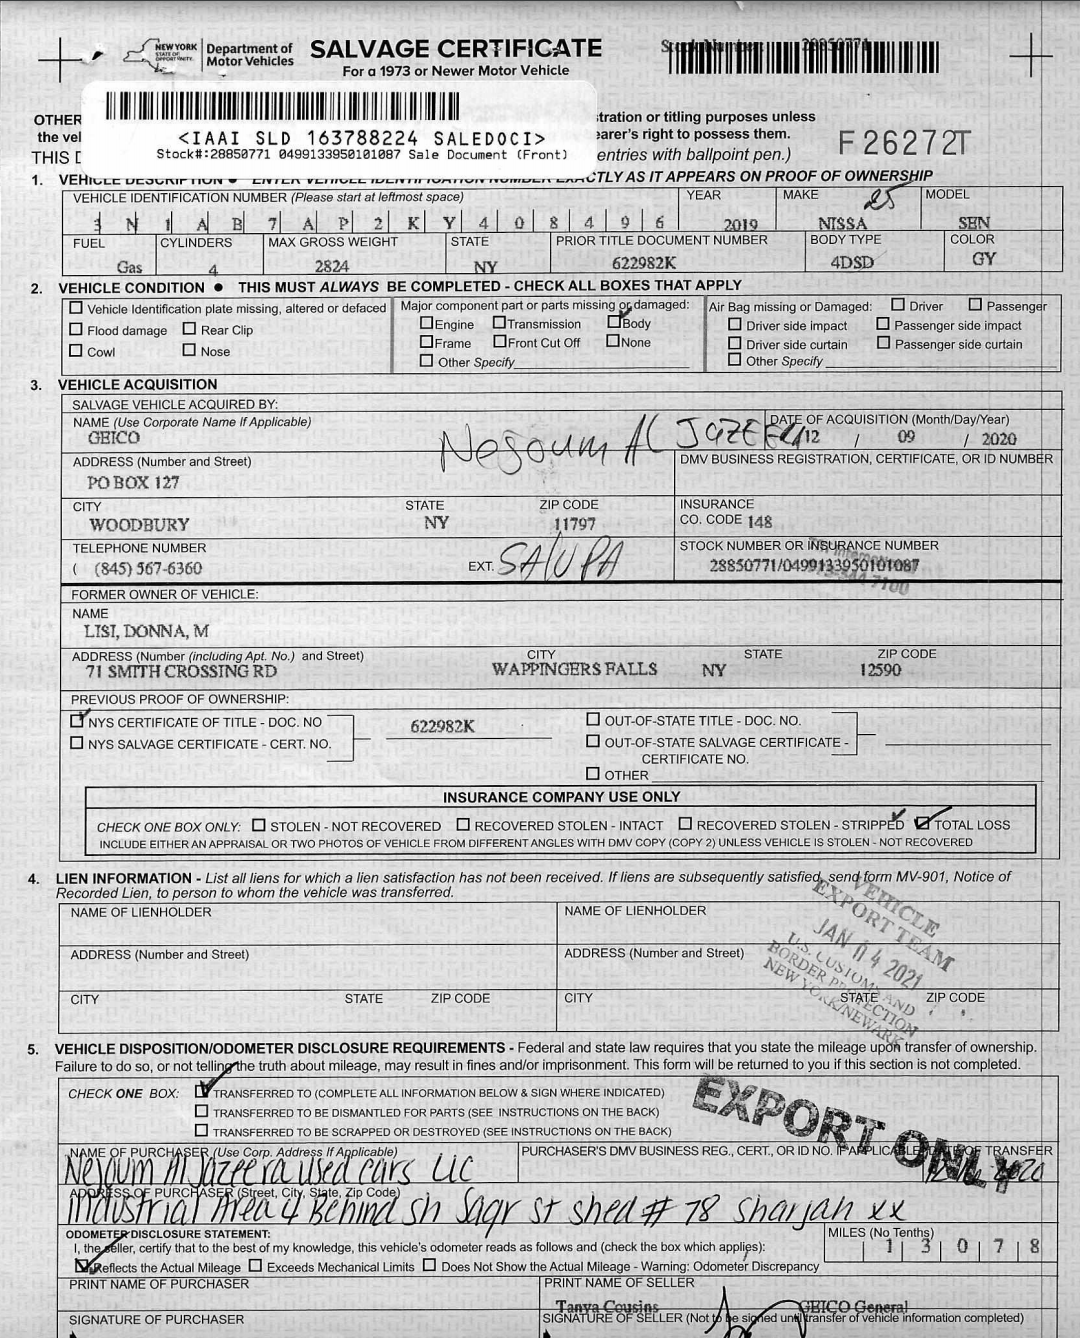 NEW YORK
STATE OF
OPPORTUNITY.
Department of
Motor Vehicles
SALVAGE CERTIFICATE
For a 1973 or Newer Motor Vehicle
Stock Number: 28850771
<IAAI SLD 163788224 SALEDOCI>
Stock#:28850771 0499133950101087 Sale Document (Front)
OTHER
stration or titling purposes unless
the vel
earer's right to possess them.
THIS D
entries with ballpoint pen.)
F26272T
1. VEHICLE DESCRIPTION ● ENTER VEHICLE IDENTIFICATION NUMBER EXACTLY AS IT APPEARS ON PROOF OF OWNERSHIP
VEHICLE IDENTIFICATION NUMBER (Please start at leftmost space) YEAR MAKE 25 MODEL
3 N 1 A B 7 A P 2 K Y 4 0 8 4 9 6 2019 NISSA SEN
FUEL CYLINDERS MAX GROSS WEIGHT STATE PRIOR TITLE DOCUMENT NUMBER BODY TYPE COLOR
Gas 4 2824 NY 622982K 4DSD GY
2. VEHICLE CONDITION ● THIS MUST ALWAYS BE COMPLETED - CHECK ALL BOXES THAT APPLY
Vehicle Identification plate missing, altered or defaced
Flood damage Rear Clip
Cowl Nose
Major component part or parts missing or damaged:
Engine Transmission Body
Frame Front Cut Off None
Other Specify
Air Bag missing or Damaged: Driver Passenger
Driver side impact Passenger side impact
Driver side curtain Passenger side curtain
Other Specify
3. VEHICLE ACQUISITION
SALVAGE VEHICLE ACQUIRED BY:
NAME (Use Corporate Name If Applicable) DATE OF ACQUISITION (Month/Day/Year)
GEICO Nejoum Al JAZEERA 12 / 09 / 2020
ADDRESS (Number and Street) DMV BUSINESS REGISTRATION, CERTIFICATE, OR ID NUMBER
PO BOX 127
CITY STATE ZIP CODE INSURANCE
CO. CODE 148
WOODBURY NY 11797
TELEPHONE NUMBER EXT. STOCK NUMBER OR INSURANCE NUMBER
( (845) 567-6360 28850771/0499133950101087
FORMER OWNER OF VEHICLE:
NAME
LISI, DONNA, M
ADDRESS (Number (including Apt. No.) and Street) CITY STATE ZIP CODE
71 SMITH CROSSING RD WAPPINGERS FALLS NY 12590
PREVIOUS PROOF OF OWNERSHIP:
NYS CERTIFICATE OF TITLE - DOC. NO 622982K
NYS SALVAGE CERTIFICATE - CERT. NO.
OUT-OF-STATE TITLE - DOC. NO.
OUT-OF-STATE SALVAGE CERTIFICATE -
CERTIFICATE NO.
OTHER
INSURANCE COMPANY USE ONLY
CHECK ONE BOX ONLY: STOLEN - NOT RECOVERED RECOVERED STOLEN - INTACT RECOVERED STOLEN - STRIPPED TOTAL LOSS
INCLUDE EITHER AN APPRAISAL OR TWO PHOTOS OF VEHICLE FROM DIFFERENT ANGLES WITH DMV COPY (COPY 2) UNLESS VEHICLE IS STOLEN - NOT RECOVERED
4. LIEN INFORMATION - List all liens for which a lien satisfaction has not been received. If liens are subsequently satisfied, send form MV-901, Notice of
Recorded Lien, to person to whom the vehicle was transferred.
NAME OF LIENHOLDER NAME OF LIENHOLDER
ADDRESS (Number and Street) ADDRESS (Number and Street)
CITY STATE ZIP CODE CITY STATE ZIP CODE
VEHICLE
EXPORT TEAM
JAN 04 2021
U.S. CUSTOMS AND
BORDER PROTECTION
NEW YORK/NEWARK
5. VEHICLE DISPOSITION/ODOMETER DISCLOSURE REQUIREMENTS - Federal and state law requires that you state the mileage upon transfer of ownership.
Failure to do so, or not telling the truth about mileage, may result in fines and/or imprisonment. This form will be returned to you if this section is not completed.
CHECK ONE BOX: TRANSFERRED TO (COMPLETE ALL INFORMATION BELOW & SIGN WHERE INDICATED)
TRANSFERRED TO BE DISMANTLED FOR PARTS (SEE INSTRUCTIONS ON THE BACK)
TRANSFERRED TO BE SCRAPPED OR DESTROYED (SEE INSTRUCTIONS ON THE BACK)
EXPORT ONLY
NAME OF PURCHASER (Use Corp. Address If Applicable) PURCHASER'S DMV BUSINESS REG., CERT., OR ID NO. IF APPLICABLE DATE OF TRANSFER
Nejoum Al Jazeera used cars LLC
ADDRESS OF PURCHASER (Street, City, State, Zip Code)
Industrial Area 4 Behind sh Saqr st shed # 78 sharjah xx
ODOMETER DISCLOSURE STATEMENT: MILES (No Tenths)
I, the seller, certify that to the best of my knowledge, this vehicle's odometer reads as follows and (check the box which applies): 1 3 0 7 8
Reflects the Actual Mileage Exceeds Mechanical Limits Does Not Show the Actual Mileage - Warning: Odometer Discrepancy
PRINT NAME OF PURCHASER PRINT NAME OF SELLER
Tanya Cousins GEICO General
SIGNATURE OF PURCHASER SIGNATURE OF SELLER (Not to be signed until transfer of vehicle information completed)